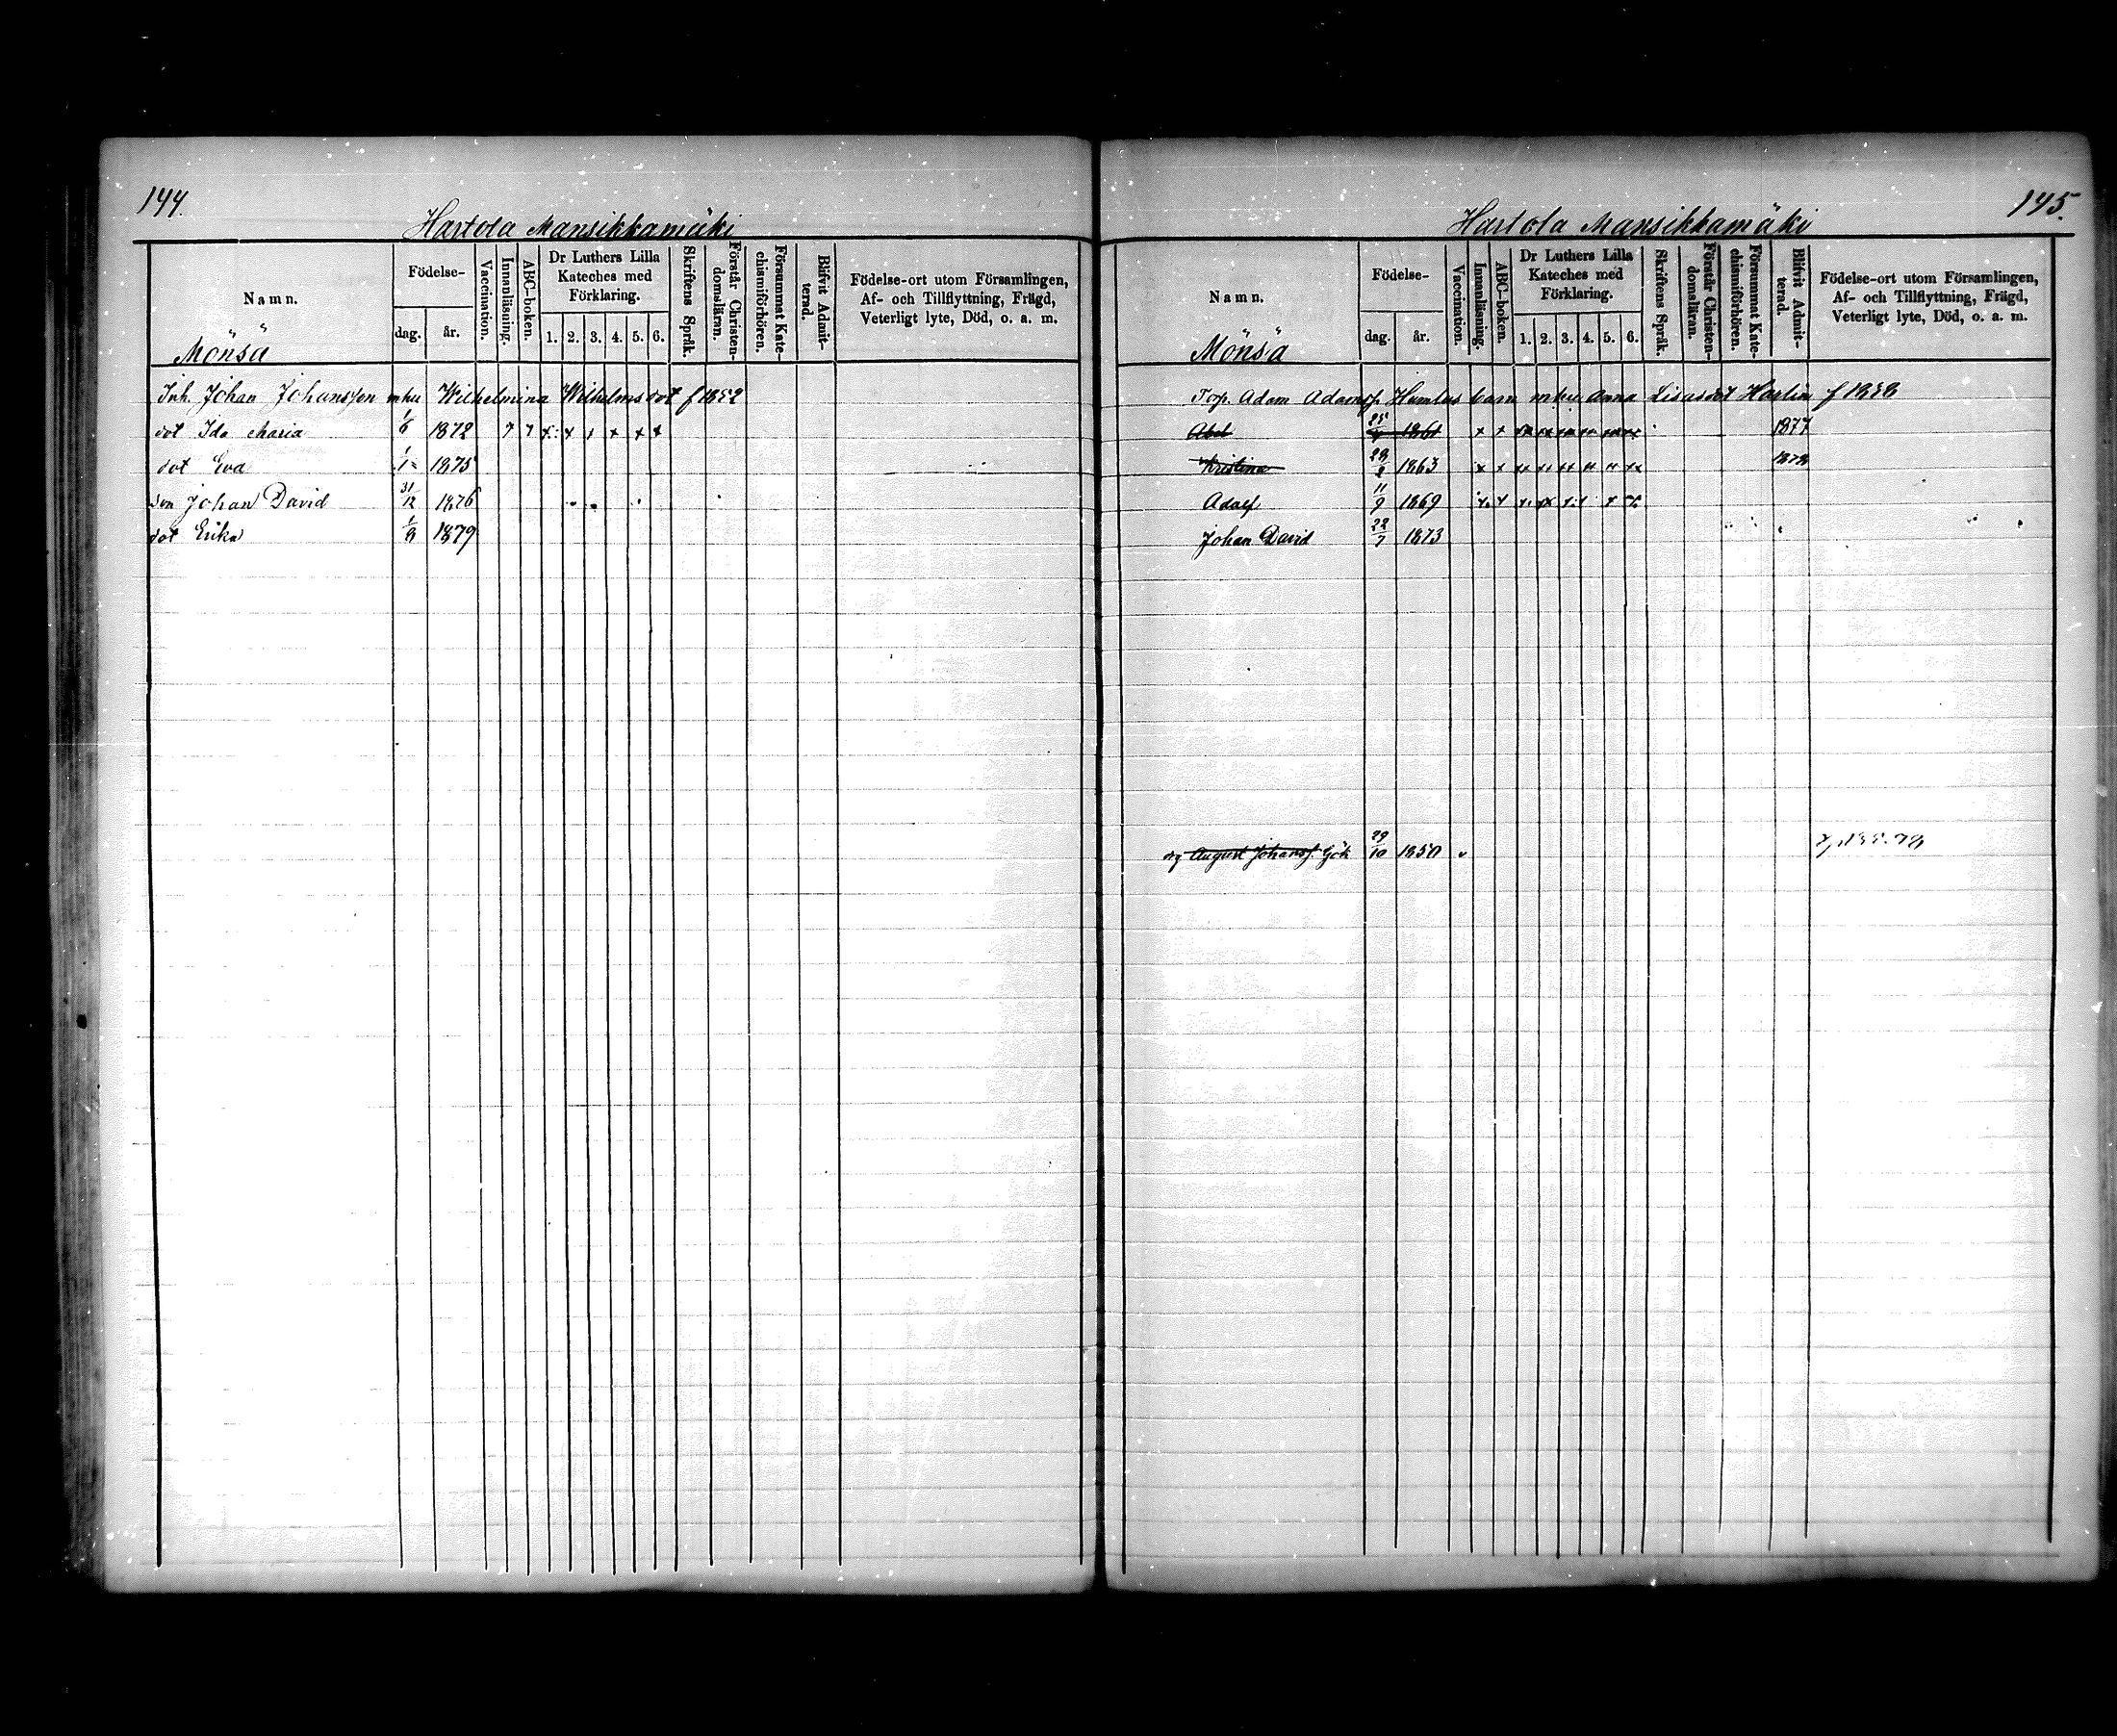 144.
Hartola Mansikkamäki
Namn.
Födelse-
dag. år.
Vaccination.
Innanläsning.
ABC-boken.
Dr Luthers Lilla Kateches med Förklaring.
1. 2. 3. 4. 5. 6.
Skriftens Språk.
Förstår Christendomsläran.
Försummat Katechismiförhören.
Blifvit Admitterad.
Födelse-ort utom Församlingen,
Af- och Tillflyttning, Frägd,
Veterligt lyte, Död, o. a. m.
Mönsä
Inh. Johan Johansson mhu Wilhelmina Wilhelmsdot f 1852
dot Ida Maria 1/6 1872
dot Eva 1875
son Johan David 31/12 1876
dot Erika 1879
145.
Hartola Mansikkamäki
Namn.
Födelse-
dag. år.
Vaccination.
Innanläsning.
ABC-boken.
Dr Luthers Lilla Kateches med Förklaring.
1. 2. 3. 4. 5. 6.
Skriftens Språk.
Förstår Christendomsläran.
Försummat Katechismiförhören.
Blifvit Admitterad.
Födelse-ort utom Församlingen,
Af- och Tillflyttning, Frägd,
Veterligt lyte, Död, o. a. m.
Mönsä
Torp. Adam Adamsf. Humlus barn mhu Anna Lisasdot Harlin
Abel 1861 1877
Kristina 28/2 1863 1878
Adolf 11/9 1869
Johan David 22/7 1873
drg August Johansf. Gök 29/10 1850